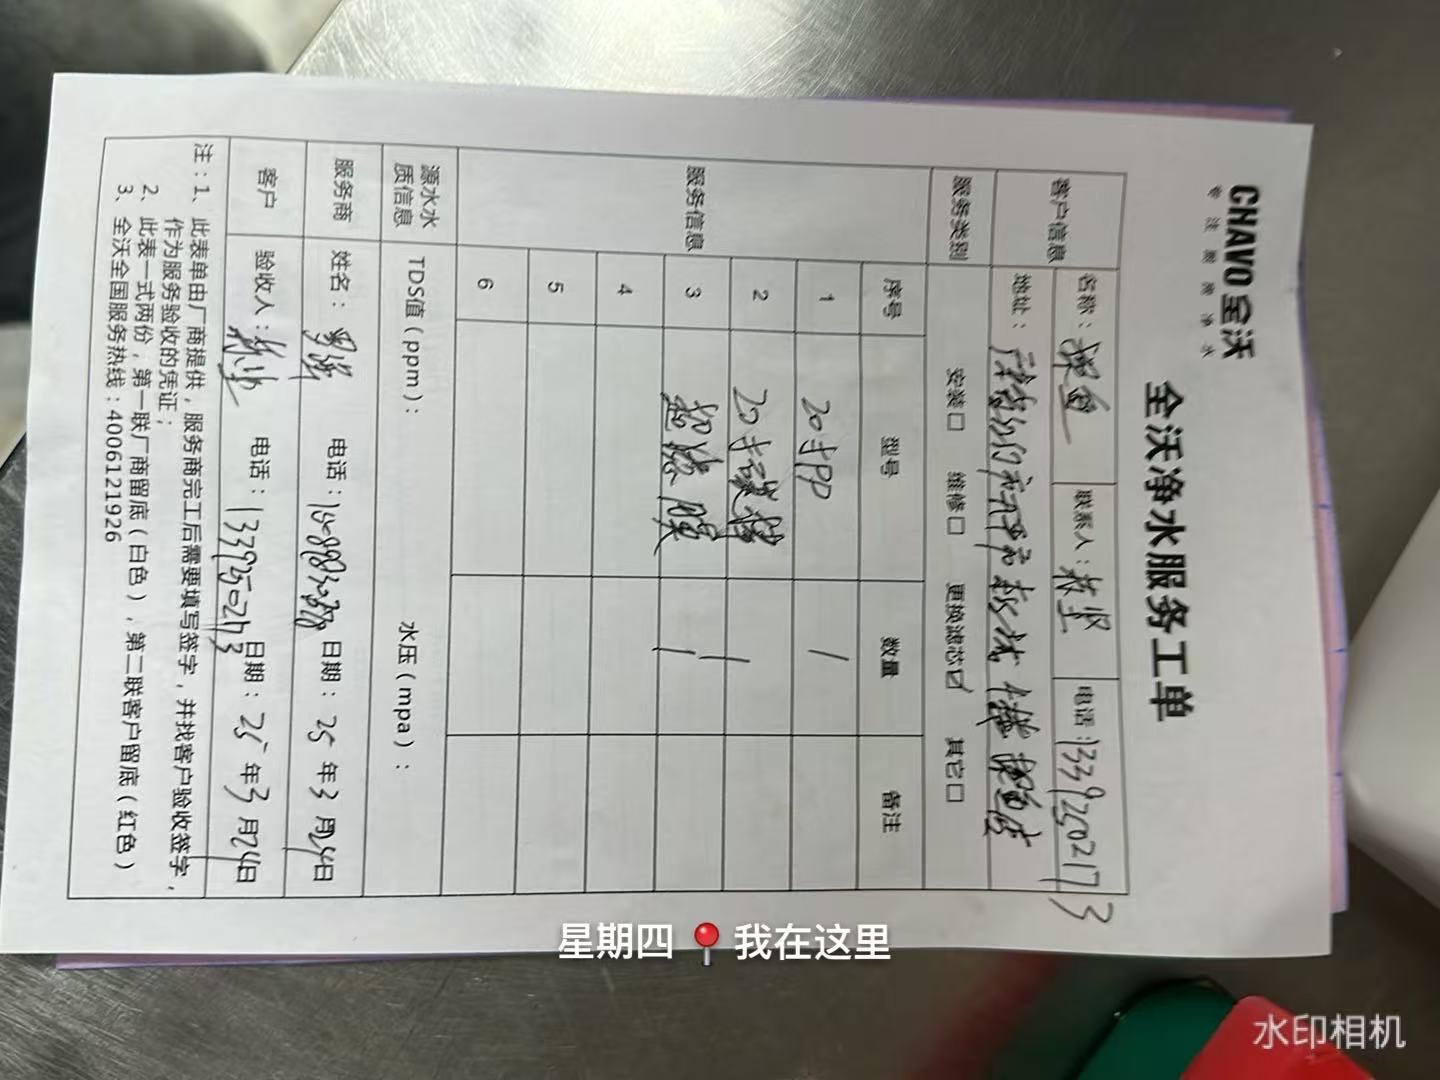 CHAVO 全沃
专注厨房净水
全沃净水服务工单
客户信息 名称： 联系人： 电话：13392502173
地址：
服务类别 安装□ 维修□ 更换滤芯☑ 其它□
服务信息 序号 型号 数量 备注
1 20寸PP 1
2 20寸 1
3 超滤膜 1
4
5
6
源水水质信息 TDS值（ppm）： 水压（mpa）：
服务商 姓名： 电话： 日期：25年3月24日
客户 验收人： 电话：13392502173 日期：25年3月24日
注：1、此表单由厂商提供，服务商完工后需要填写签字，并找客户验收签字，
作为服务验收的凭证；
2、此表一式两份，第一联厂商留底（白色），第二联客户留底（红色）
3、全沃全国服务热线：4006121926
星期四 📍 我在这里
水印相机